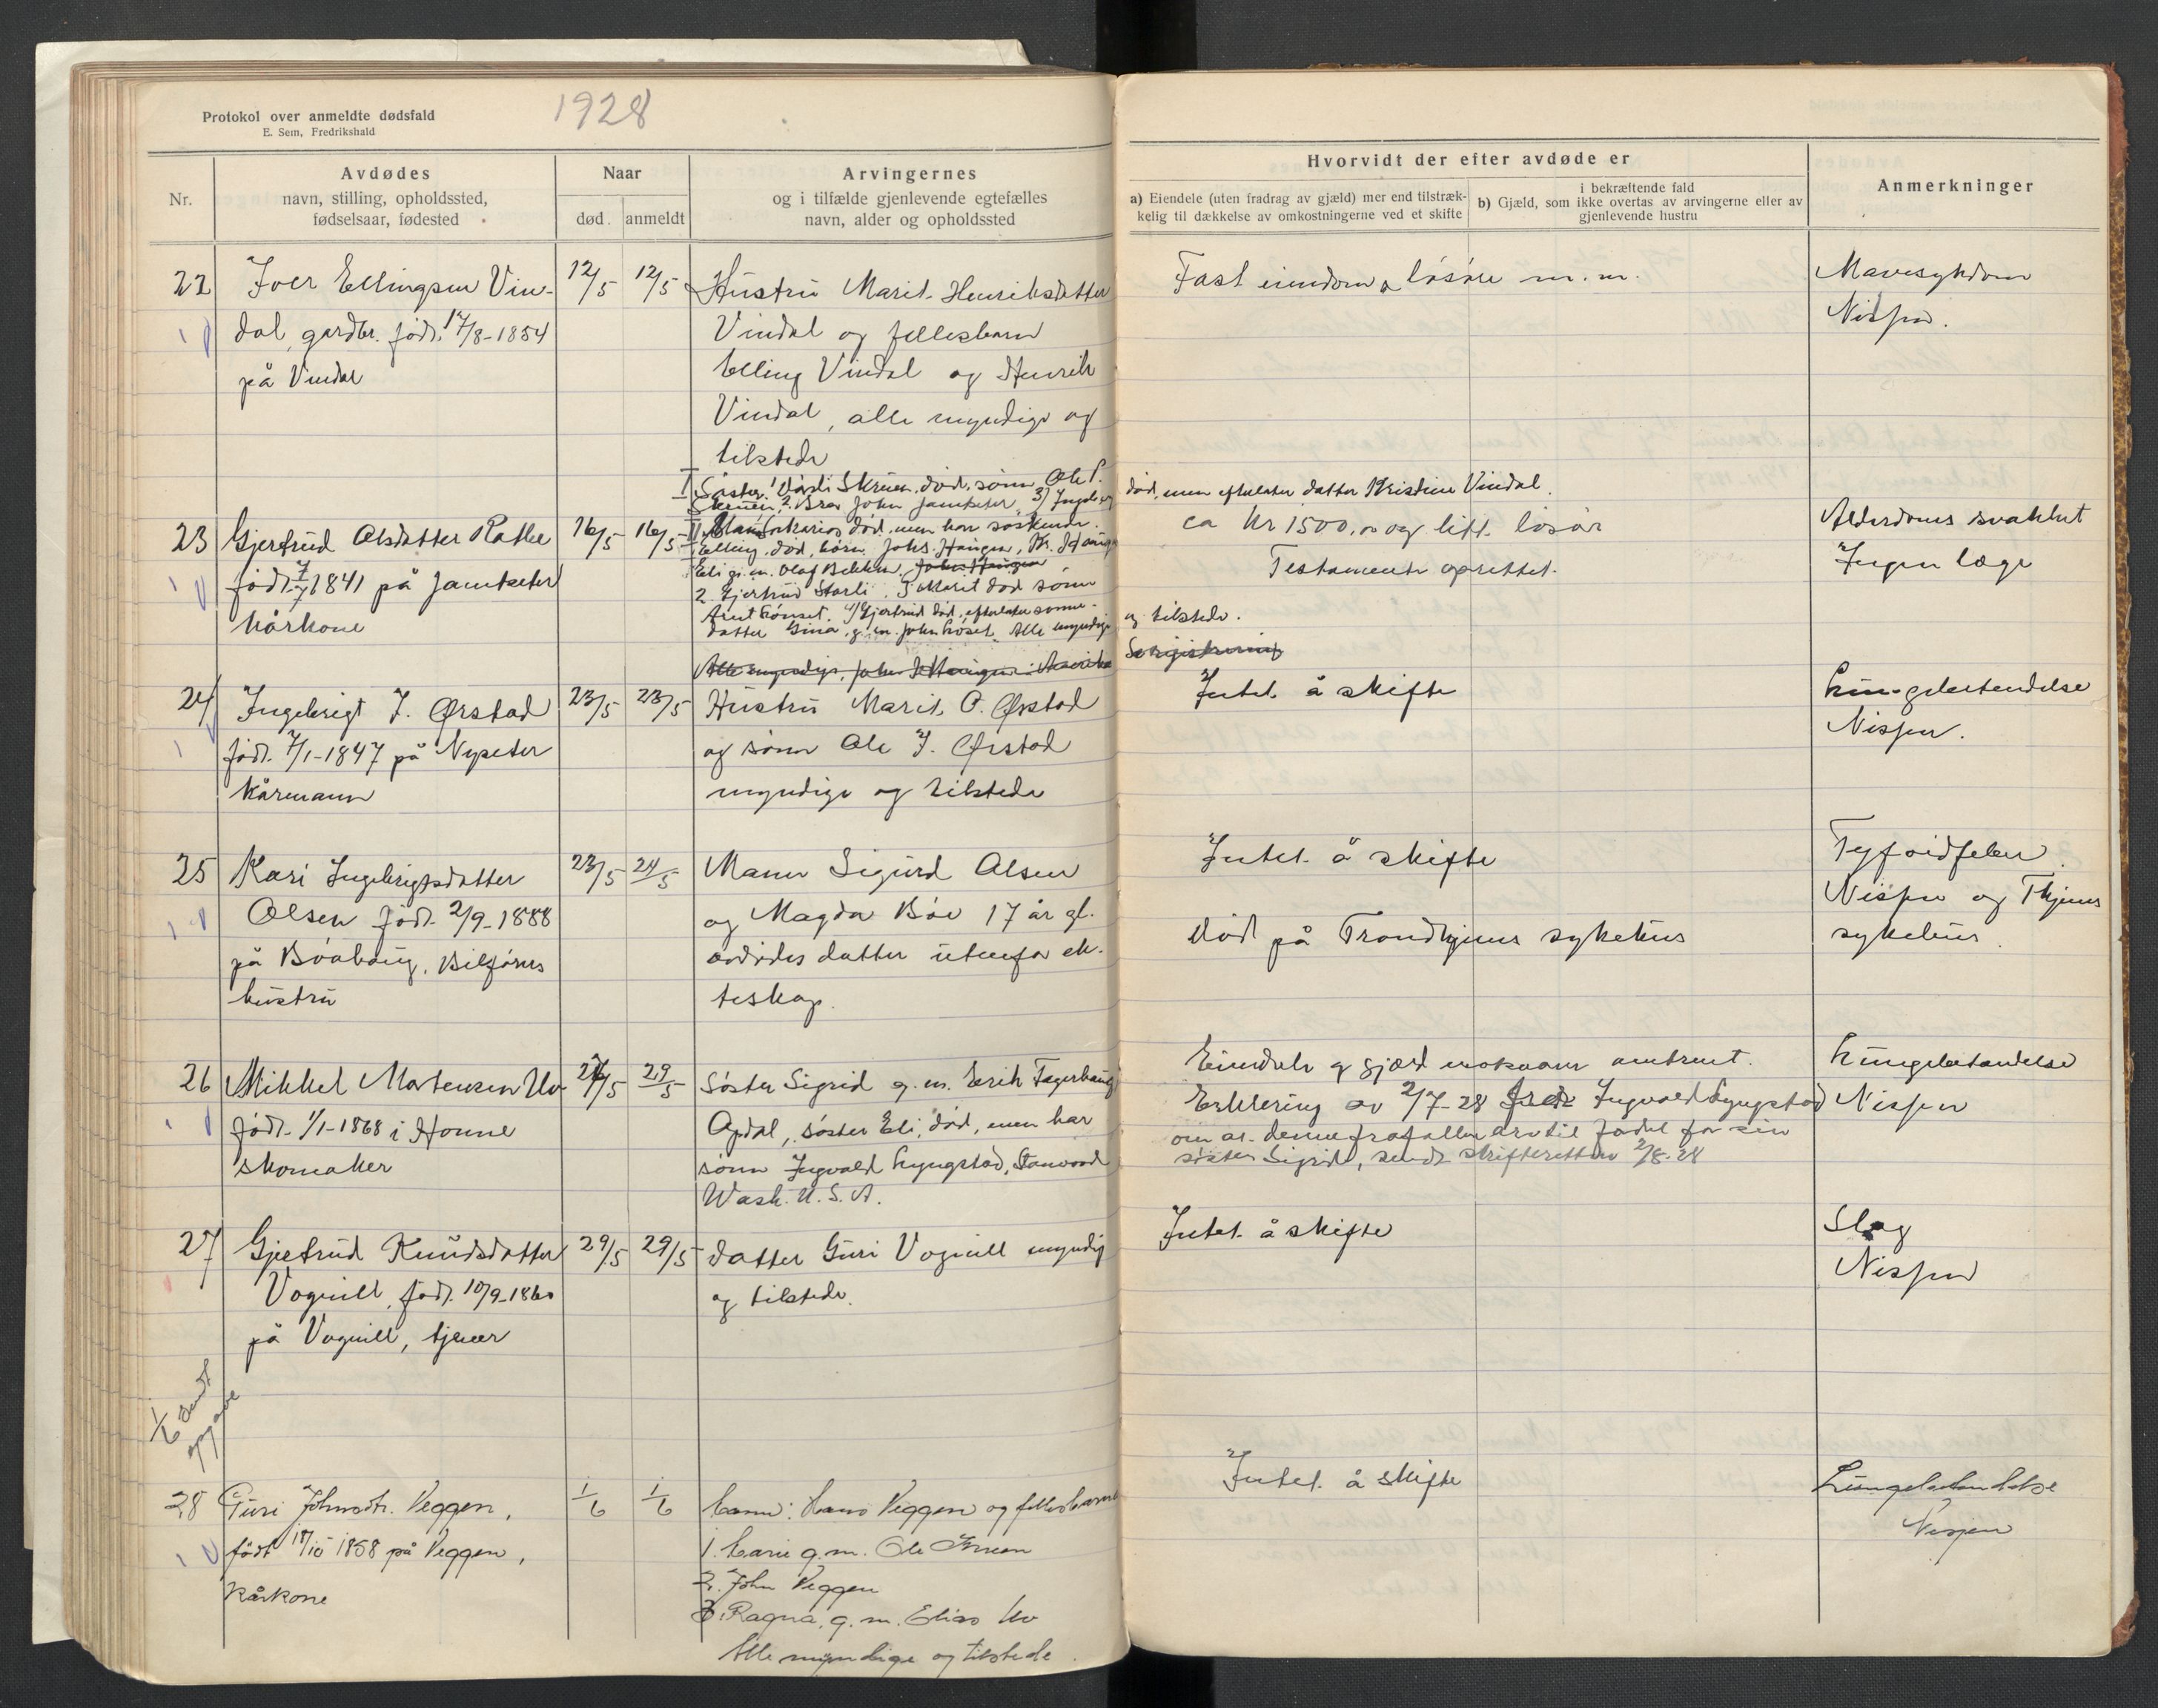 Protokol over anmeldte dødsfald
E. Sem, Fredrikshald
1928
Nr.
Avdødes
navn, stilling, opholdssted,
fødselsaar, fødested
Naar
død. anmeldt
Arvingernes
og i tilfælde gjenlevende egtefælles
navn, alder og opholdssted
Hvorvidt der efter avdøde er
a) Eiendele (uten fradrag av gjæld) mer end tilstræk-
kelig til dækkelse av omkostningerne ved et skifte
i bekræftende fald
b) Gjæld, som ikke overtas av arvingerne eller av
gjenlevende hustru
Anmerkninger
22 Iver Ellingsen Vin-
dal, gardbr. født 17/8-1854
på Vindal
12/5 12/5
Hustru Marit Henriksdatter
Vindal og fellesbarn
Elling Vindal og Henrik
Vindal, alle myndige og
tilstede
Fast eiendom & løsøre m.m.
Mavesykdom
Nissen.
23 Gjertrud Olsdatter
født 7/7 1841 på Jamtseter
kårkone
16/5 16/5
I Søster: Skruen, død, sønn Ole P.
Skruen, 2. Bror John Jamtseter, 3) Ingeborg
død, men efterlater datter Kristine Vindal.
død, men har søskende.
Elling, død, børn Johs. Haugen,
Eli g.m. Olaf Bekken, John Haugen
2. Gjertrud Starli. 3 Marit død sønn
4) Gjertrud død, efterlater sønne-
datter Gina, g.m. John Alle myndige
og tilstede.
Alle myndige, John Haugen i Amerika
ca kr 1500,00 og litt løsør
Testamente oprettet.
Alderdoms svakhet
Ingen læge
24 Ingebrigt J. Ørstad
født 7/1-1847 på Nyseter
kårmann
23/5 23/5
Hustru Marit O. Ørstad
og sønn Ole I. Ørstad
myndige og tilstede
Intet å skifte
Lungebetendelse
Nissen.
25 Kari Ingebrigtsdatter
Olsen født 2/9-1888
på Bøahaug, Bilførers
hustru
23/5 24/5
Mann Sigurd Olsen
og Magda Bøe 17 år gl.
avdødes datter utenfor ek-
teskap.
Intet å skifte
død på Trondhjems sykehus
Tyfoidfeber
Nissen og Thjems
sykehus.
26 Mikkel Mortensen Uv
født 1/1-1868 i Horne
skomaker
29/5
Søster Sigrid g.m. Erik Fagerhaug
Opdal, søster Eli, død, men har
sønn Ingvald Lyngstad, Stanwood
Wash. U.S.A.
Eiendele og gjæld motsvarer omtrent.
Erklering av 2/7-28 fra Ingvald Lyngstad
om at denne frafaller arv til fordel for sin
søster Sigrid, sendt skifteretten 2/8-28
Lungebetendelse
Nissen
27 Gjertrud Knudsdatter
Vognill, født 10/9-1860
på Vognill, tjener
29/5 29/5
datter Guri Vognill myndig
og tilstede.
Intet å skifte
Slag
Nissen
1/6 sendt
opgave
28 Guri Johnsdtr. Veggen,
født 18/10 1858 på Veggen,
Kårkone
1/6 1/6
Mann: Hans Veggen og fellesbarn
1. Marie g.m. Ole
2. John Veggen
3. Ragna, g.m. Elias Uv
Alle myndige og tilstede.
Intet å skifte
Lungebetendelse
Nissen